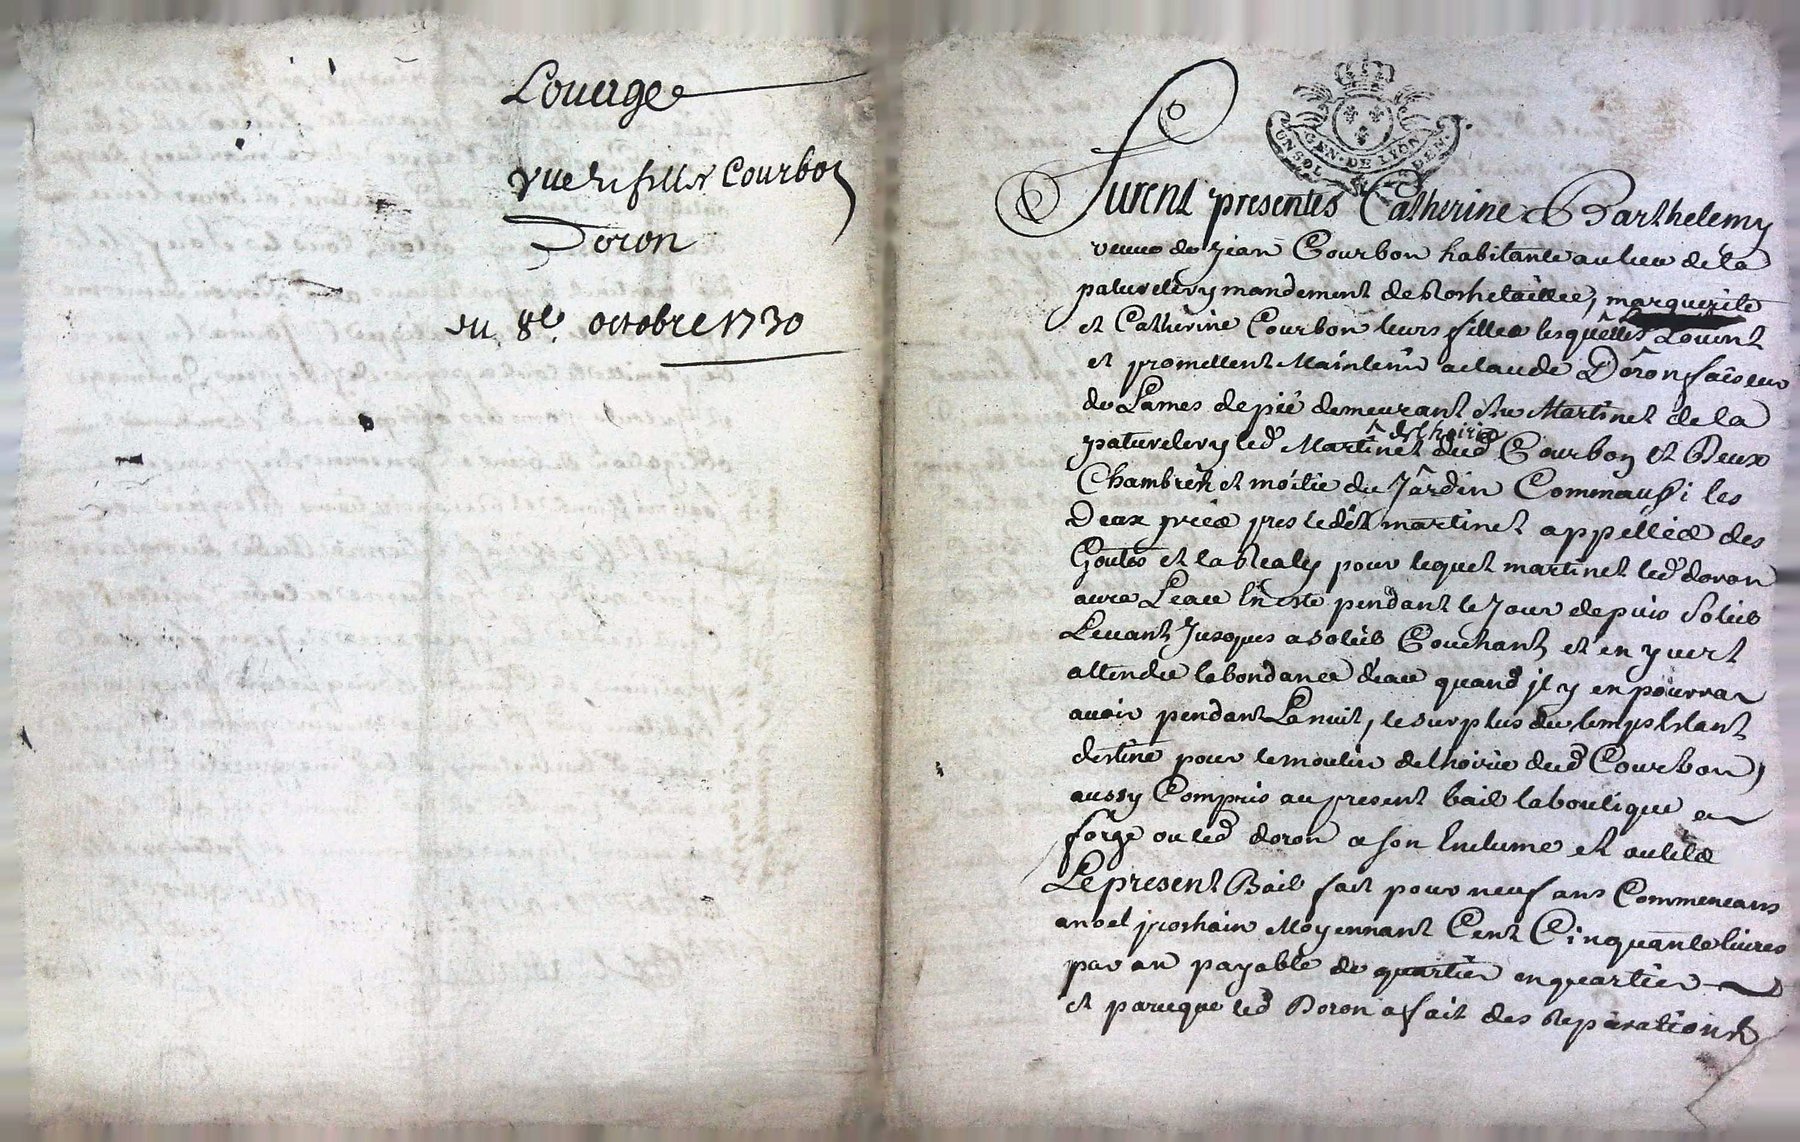 Louage
vue & filles Courbon
Doron
du 8e. octobre 1730
GEN. DE LYON
UN SOL DEM.
Furent presentes Catherine Barthelemy
veuve de Jean Courbon habitante au lieu de la
paturelery mandement de Rochetaillee, marguerite
et Catherine Courbon leurs filles lesquelles Louent
et promettent Maintenir a claude Doron faiseur
de Lames depée demeurant au Martinet de la
paturelery led Martinet de lhoirie dud Courbon et Deux
Chambres et moitie du Jardin Comm aussi les
Deux pries pres ledit martinet appellées des
Goutes et la Realy pour lequel martinet led doron
aura Leau En esté pendant le Jour depuis Soleil
Levant Jusques a soleil Couchant et en yvert
attendu labondance deau quand jl y en pourra
avoir pendant La nuit, le surplus du temps Estant
destiné pour le moulin de lhoirie dud Courbon,
aussy Compris au present bail la boutique en
forge ou led doron a son Enclume et outils
Le present Bail fait pour neuf ans Commencans
a noel prochain Moyennant Cent Cinquante livres
par an payable de quartier en quartier
et parceque led Doron a fait des Reparations